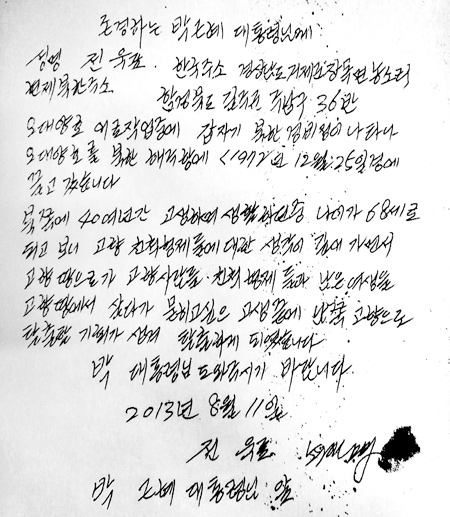 존경하는 박근혜 대통령님에
성명 전욱표 한국주소 경상남도 거제군 장목면 농소리
현재 북한주소 함경북도 길주군 36반
오대양호 어로작업중에 갑자기 북한 경비정이 나타나
오대양호를 북한 해주항에 <1972년 12월:25일경에
끌고 갔습니다
북쪽에 40여년간 고생하며 생활하던중 나이가 68세로
되고 보니 고향 친척형제들에 대한 생각이 깊어 가면서
고향땅으로 가 고향사람들.친척형제들과 남은 여생을
고향땅에서 살다가 묻히고싶은 고생끝에 남쪽 고향으로
탈출할 기회가 생겨 탈출하게 되였습니다
박 대통령님 도와주시기 바랍니다.
2013년 8월 11일
전욱표
박근혜 대통령님 앞